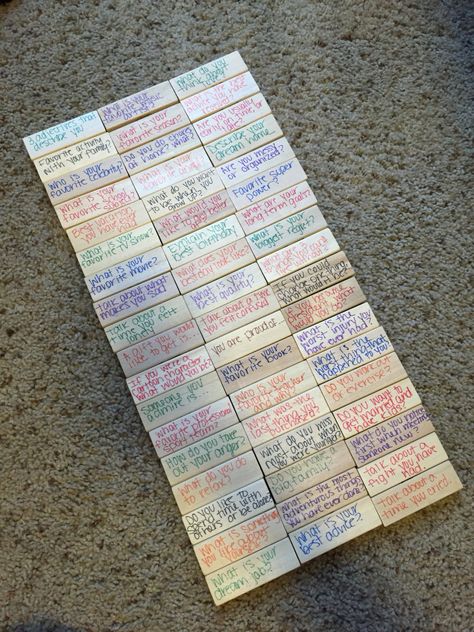 3 adjectives that
describe you.
Favorite activity
with your family?
Who is your
favorite celebrity?
What is your
favorite
Best vacation
you have had
What is your
favorite show?
What is your
favorite movie?
Talk about what
makes you sad
Talk about a
time you felt
A gift you would
like to get is...
If you were a
cartoon character
what would you be?
Someone you
admire is...
What is your
favorite professional
sports team?
How do you take
out your anger?
What do you do
to relax?
Do you like to
spend time with
others or be alone?
What is something
What is your
dream job?
What is your
favorite
What is your
favorite season?
Do you do chores
at home? what?
What is your
favorite
What do you want
to be when you
grow up?
What would you like
to get better
Explain your
best birthday
What does your
best day look like
What is your
best quality?
Talk about a time
you felt
you are proud of...
What is your
favorite book?
Who is your
and why?
What was the
last thing
What do you miss
most about when
you were younger?
Do you have a
big family?
What is the most
adventurous thing
you have ever done?
What is your
best advice?
What do you
think about
What is the best
Are you usually
early, on time or
late
Describe your
dream home
Are you messy
or organized?
Favorite super
power?
What are your
long term goals?
What is your
biggest regret?
What is your
If you could
change one thing
What is the
worst injury you
have ever had?
What is the
worst thing that
happened to you?
Do you
or exercise?
Do you want to
get married and
have kids?
What do you
first notice when meeting
someone new?
talk about a
fight you have
had.
talk about a
time you cried.